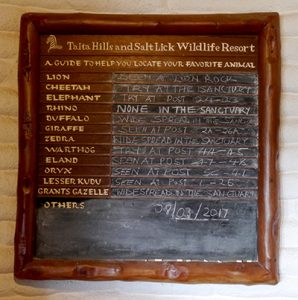 Taita Hills and Salt Lick Wildlife Resort
A GUIDE TO HELP YOU LOCATE YOUR FAVORITE ANIMAL
LION SEEN AT LION ROCK
CHEETAH TRY AT THE SANCTUARY
ELEPHANT TRY AT POST
RHINO NONE IN THE SANCTUARY
BUFFALO WIDE SPREAD IN THE
GIRAFFE SEEN AT POST
ZEBRA WIDESPREAD IN THE SANCTUARY
WARTHOG TRY AT POST
ELAND SEEN AT POST
ORYX SEEN AT POST
LESSER KUDU SEEN AT POST
GRANTS GAZELLE WIDESPREAD IN THE SANCTUARY
OTHERS
/03/2017